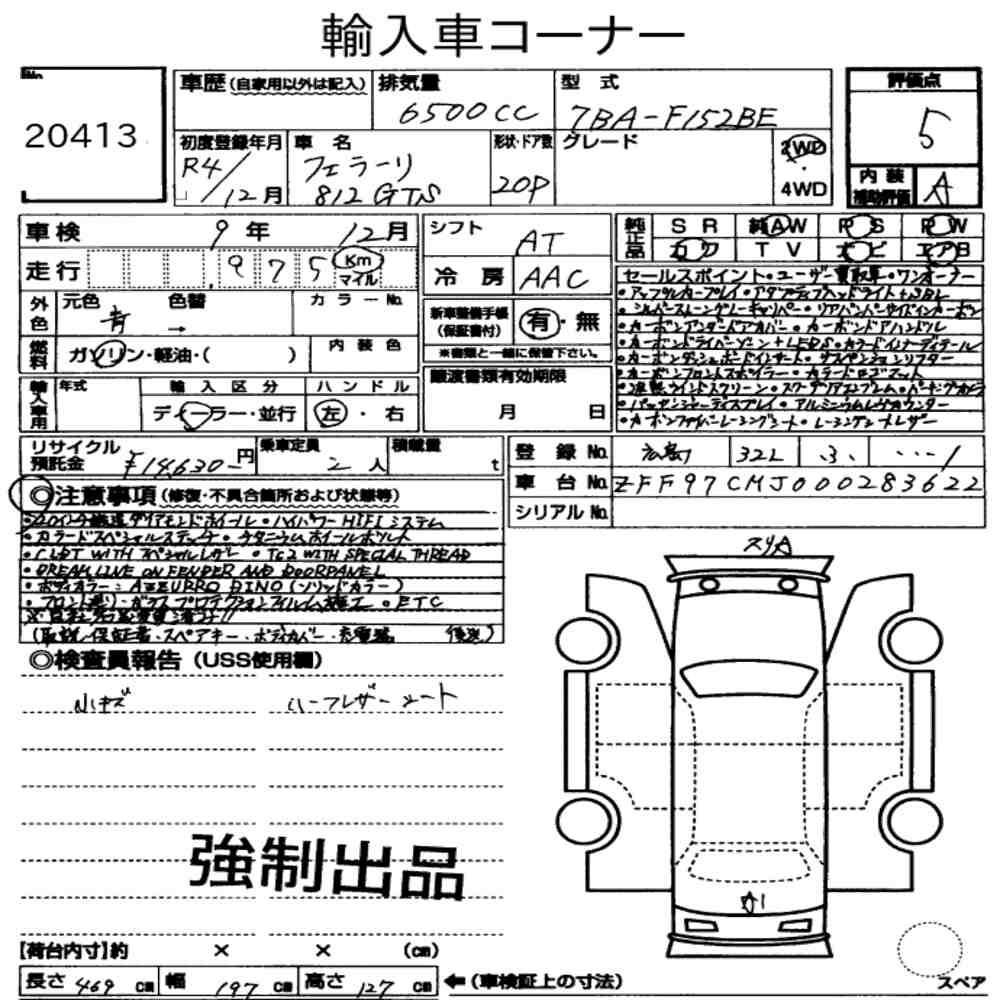 輸入車コーナー
No.
20413
車歴(自家用以外は記入) 排気量 6500CC 型式 7BA-F152BE
評価点 5
初度登録年月 R4/12月 車名 フェラーリ 812GTS 形状・ドア数 2OP グレード 2WD・4WD
内装補助評価 A
車検 9年 12月
シフト AT
純正品 SR 純AW PS PW
カワ TV ナビ エアB
走行 975 Km マイル
冷房 AAC
外色 元色 青 色替 → カラーNo.
新車整備手帳(保証書付) 有・無
※書類と一緒に保管下さい。
燃料 ガソリン・軽油・( ) 内装色
輸入車用 年式 輸入区分 ディーラー・並行 ハンドル 左・右
譲渡書類有効期限 月 日
セールスポイント・ユーザー買取車・ワンオーナー
・アップルカープレイ・アダプティブヘッドライト+SBL
・シルバーストーングレーキャリパー・リアバンパーサイドインカーボン
・カーボンアンダードアカバー・カーボンドアハンドル
・カーボンドライバーゾーン+LEDS・カラードインナーディテール
・カーボンダッシュボードインサート・サスペンションリフター
・カーボンフロントスポイラー・カラードロゴマット
・パッセンジャーディスプレイ・アルミニウムレヴカウンター
・カーボンファイバーレーシングシート・レーシングシートレザー
リサイクル預託金 ¥14,630-円 乗車定員 2人 積載量 t
登録No. 広島 32L ・3・ ・・・1
車台No. ZFF97CMJ000283622
シリアルNo.
◎注意事項(修復・不具合箇所および状態等)
・20インチ鍛造ダイアモンドホイール・ハイパワーHIFIシステム
・カラードスペシャルステッチ・チタニウムホイールボルト
・CLRT WITH スペシャルレザー・TC2 WITH SPECIAL THREAD
・DREAM LINE ON FENDER AND DOORPANEL
・ボディカラー:AZZURRO DINO(ソリッドカラー)
・フロント廻り・ガラスプロテクションフィルム施工・ETC
(取説、保証書・スペアキー・ボディカバー・充電器 後送)
◎検査員報告(USS使用欄)
小キズ ハーフレザーシート
強制出品
スリA
A1
【荷台内寸】約 × × (cm)
長さ 469 cm 幅 197 cm 高さ 127 cm ←(車検証上の寸法)
スペア